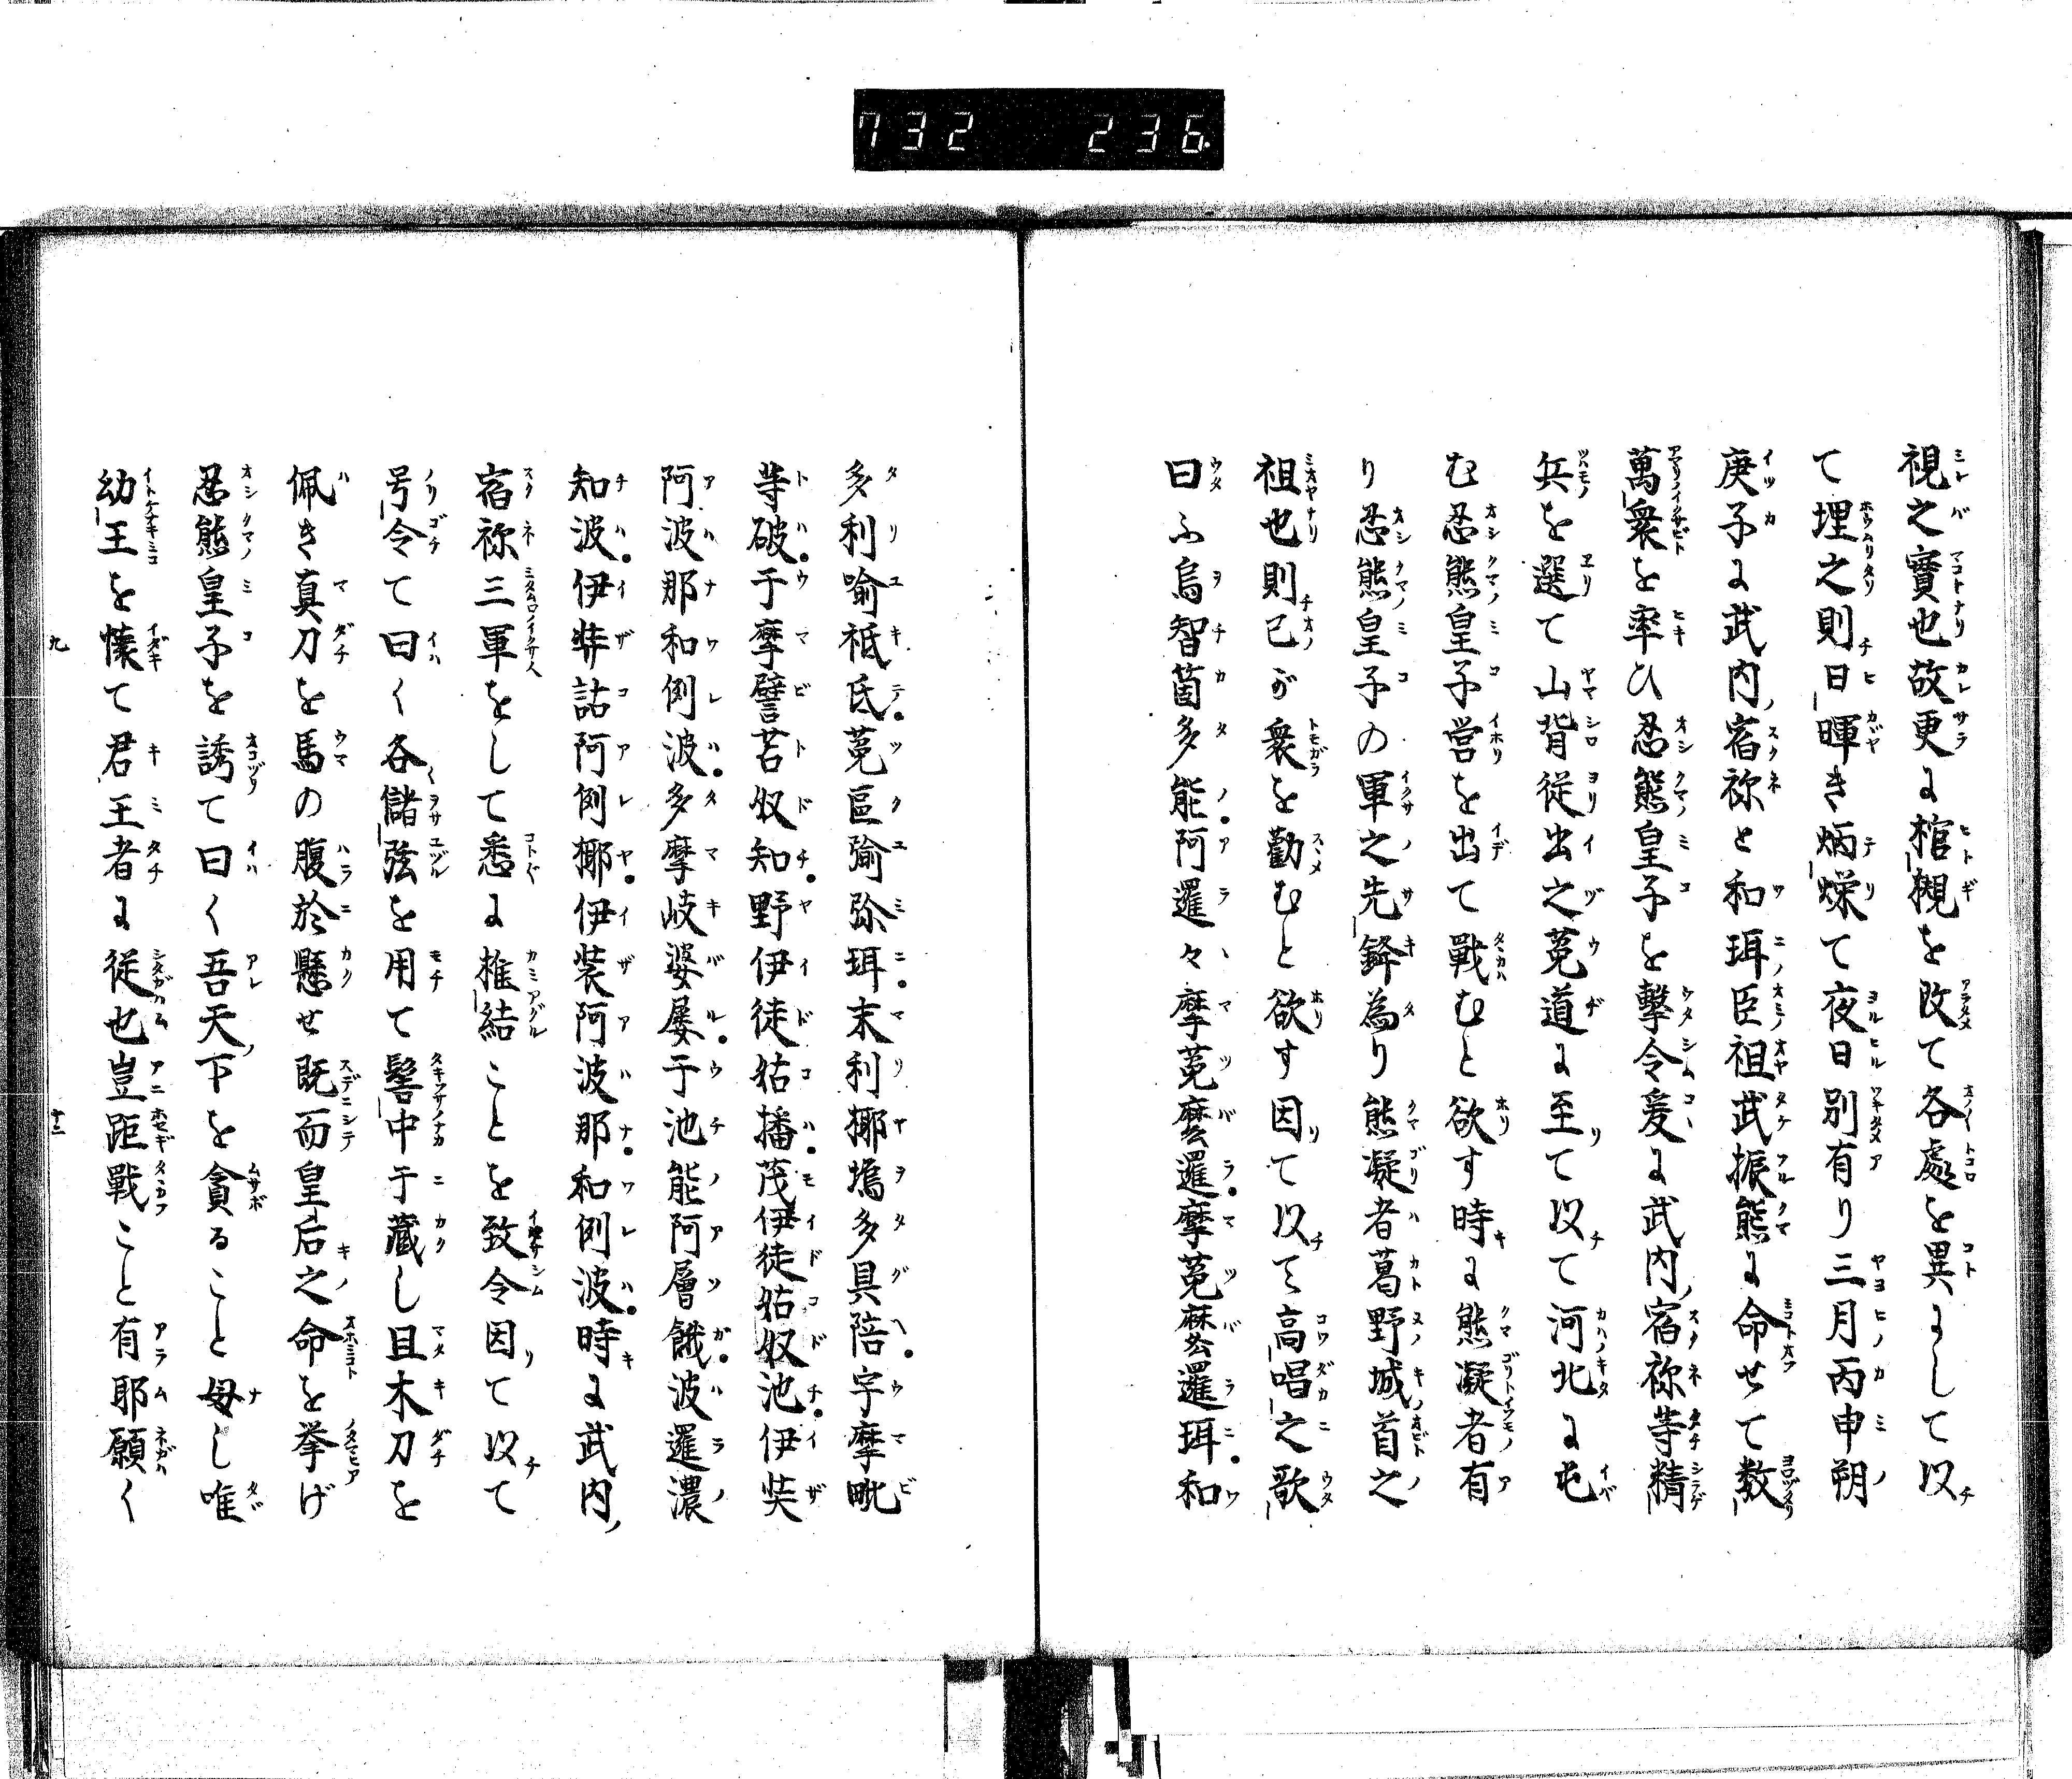 732 236
視之實也故更に棺櫬を改て各處を異にして以
て埋之則日暉き炳爍て夜日別有り三月丙申朔
庚子に武内宿祢と和珥臣祖武振熊に命せて数
萬衆を率ひ忍熊皇子を撃令爰に武内宿祢等精
兵を選て山背従出之菟道に至て以て河北に屯
む忍熊皇子営を出て戰むと欲す時に熊凝者有
り忍熊皇子の軍之先鋒為り熊凝者葛野城首之
祖也則己が衆を勸むと欲す因て以て高唱之歌
曰ふ烏智箇多能阿邏々摩菟麼邏摩菟麼邏珥和
多利喩祇氐菟區喩弥珥末利揶塢多具陪宇摩毗
等破于摩譬苔奴知野伊徒姑播茂伊徒姑奴池伊奘
阿波那和例波多摩岐婆屢于池能阿層餓波邏濃
知波伊弉詁阿例揶伊装阿波那和例波時に武内
宿祢三軍をして悉に推結ことを致令因て以て
号令て曰く各儲弦を用て髻中于蔵し且木刀を
佩き真刀を馬の腹於懸せ既而皇后之命を挙げ
忍熊皇子を誘て曰く吾天下を貪ること毋し唯
幼王を懐て君王者に従也豈距戰こと有耶願く
九
十二